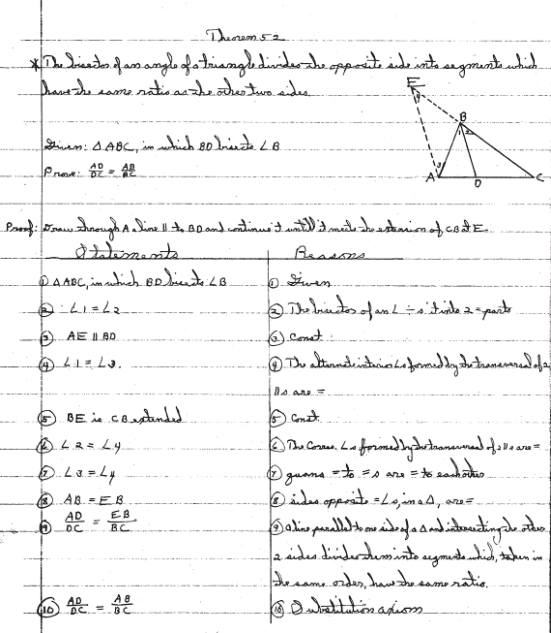 Theorem 52
* The bisector of an angle of a triangle divides the opposite side into segments which
have the same ratio as the other two sides.
E
B
1 2
3
A D C
Given: △ABC, in which BD bisects ∠B
Prove: AD/DC = AB/BC
Proof: Draw through A a line ∥ to BD and continue it until it meets the extension of CB at E
Statements Reasons
① △ABC, in which BD bisects ∠B ① Given
② ∠1 = ∠2 ② The bisector of an ∠ ÷s it into 2 = parts
③ AE ∥ BD ③ Const.
④ ∠1 = ∠3. ④ The alternate interior ∠s formed by the transversal of 2
∥s are =
⑤ BE is CB extended ⑤ Const.
⑥ ∠2 = ∠4 ⑥ The Corres. ∠s formed by the transversal of 2 ∥s are =
⑦ ∠3 = ∠4 ⑦ quans = to = s are = to each other
⑧ AB = EB ⑧ sides opposite = ∠s, in a △, are =
⑨ AD/DC = EB/BC ⑨ a line parallel to one side of a △ and intersecting the other
2 sides divides them into segments which, taken in
the same order, have the same ratio.
⑩ AD/DC = AB/BC ⑩ Substitution axiom